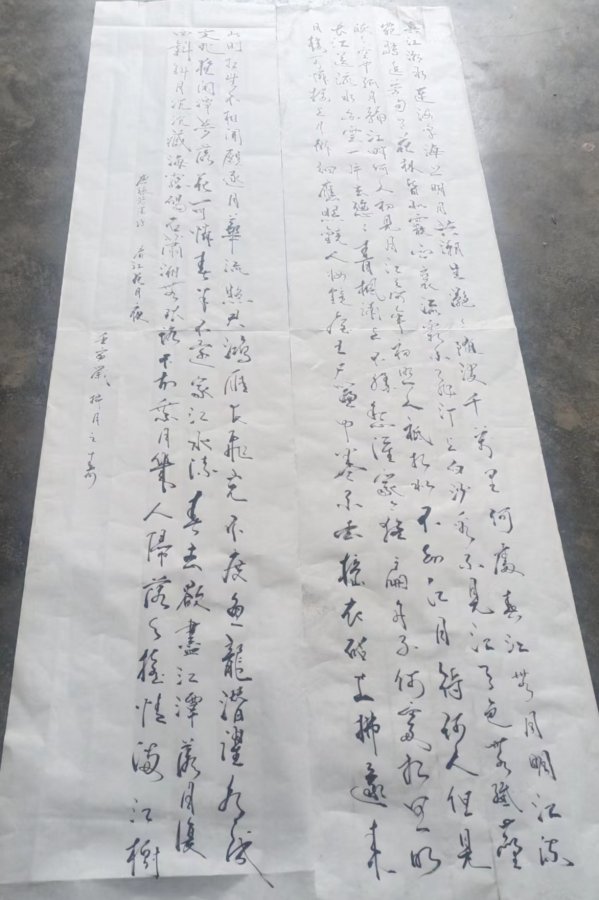 春江潮水連海平海上明月共潮生灩灩隨波千萬里何處春江無月明江流
宛轉繞芳甸月照花林皆如霰空裏流霜不覺飛汀上白沙看不見江天一色無纖塵
皎皎空中孤月輪江畔何人初見月江月何年初照人祗相似不知江月待何人但見
長江送流水白雲一片去悠悠青楓浦上不勝愁誰家今夜扁舟子何處相思明
月樓可憐樓上月徘徊應照離人妝鏡臺玉戶簾中卷不去擣衣砧上拂還來
此時相望不相聞願逐月華流照君鴻雁長飛光不度魚龍潛躍水成
文昨夜閒潭夢落花可憐春半不還家江水流春去欲盡江潭落月復
西斜斜月沉沉藏海霧碣石瀟湘無限路不知乘月幾人歸落月搖情滿江樹
唐張若虛詩 春江花月夜
壬寅歲 月之